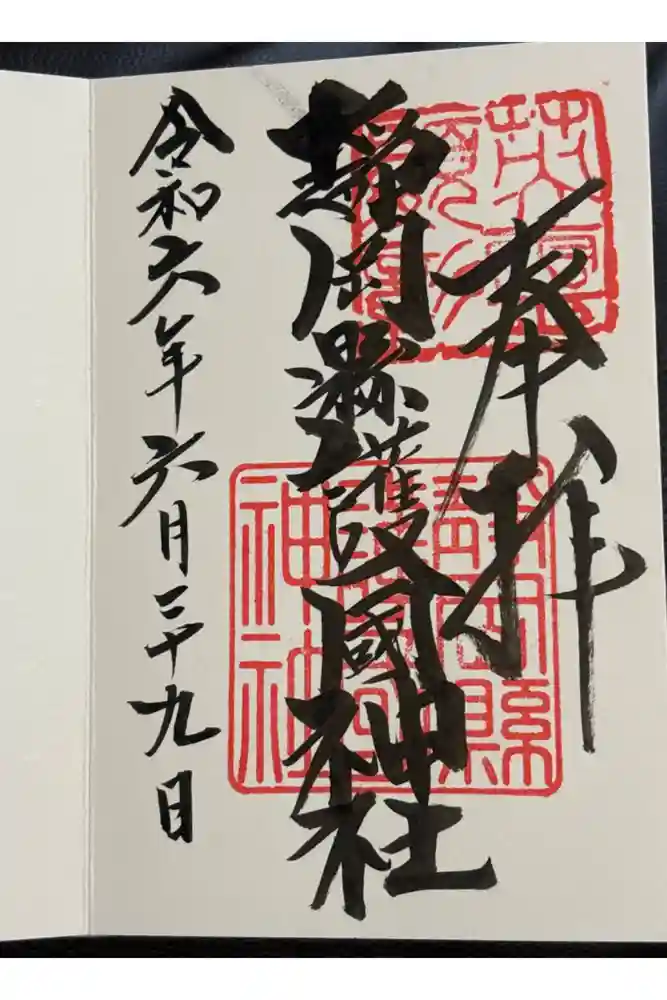 奉拝
静岡縣護國神社
静岡縣護國神社
令和六年六月二十九日